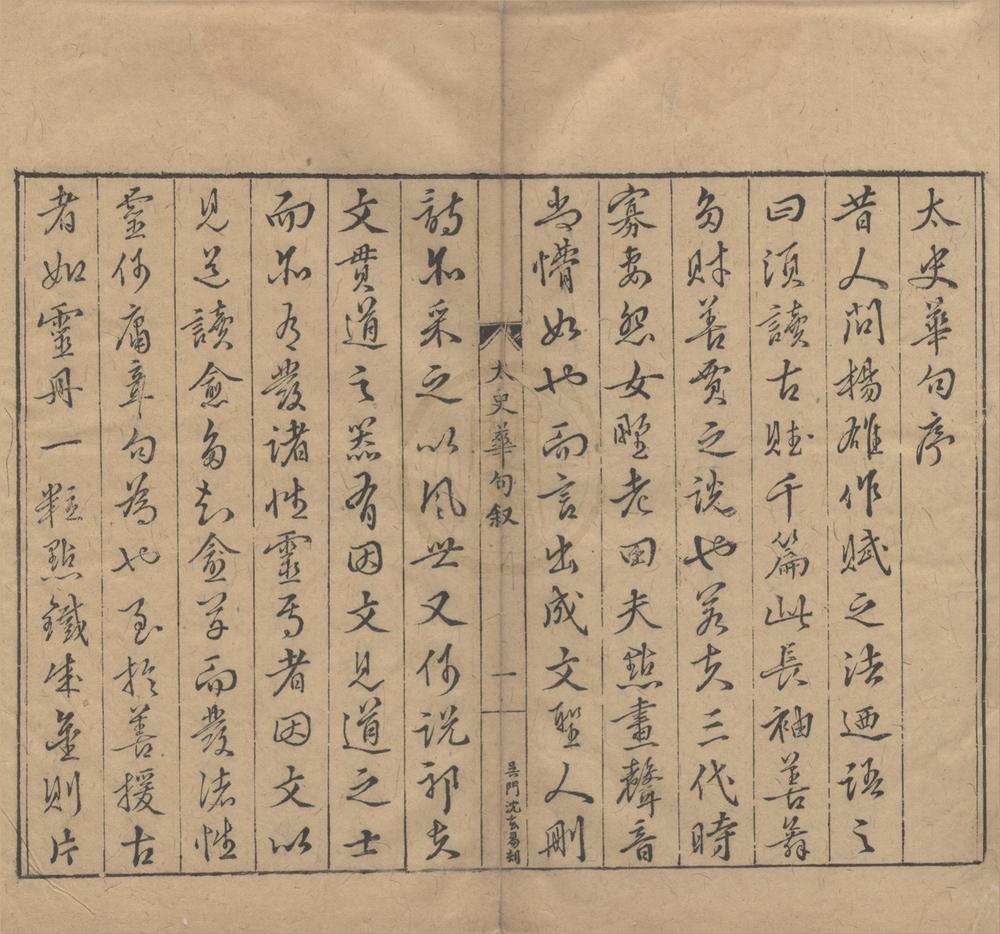 太史華句序
昔人問楊雄作賦之法迺語之
曰須讀古賦千篇此長袖善舞
多財善賈之說也若夫三代時
寡妻怨女野老田夫點畫聲音
尚懵如也而言出成文聖人刪
太史華句叙
一
吳門沈玄易刻
詩亦采之以風世又何說耶夫
文貫道之器有因文見道之士
而亦有發諸性靈焉者因文以
見道讀愈多知愈而發諸性
靈何庸章句為也至於善援古
者如靈丹一粒點鐵成金則片